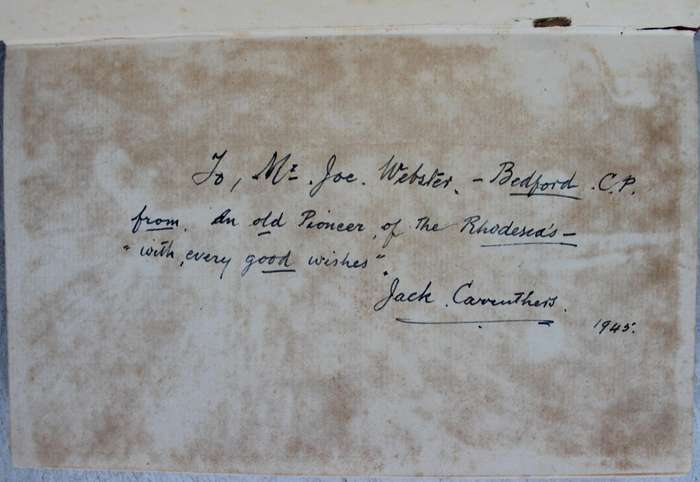 To, Mr. Joe. Webster. - Bedford. C.P.
from. An old Pioneer, of The Rhodesia's -
"with, every good wishes".
Jack. Carruthers.
1945.